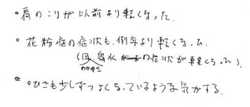 ・肩のこりが以前より軽くなった。
・花粉症の症状も、例年より軽くなった
(鼻水の症状が軽くなった)
・ひざも少しずつよくなっているような気がする。